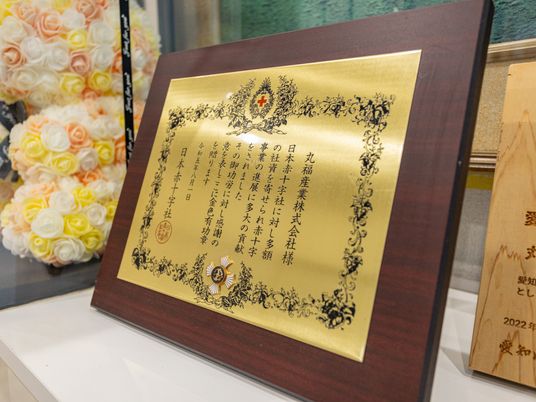 丸福産業株式会社様
日本赤十字社に対し多額
の社資を寄せられ赤十字
事業の進展に多大の貢献
をされました
その御功労に対し感謝の
意を表しここに金色有功章
を贈ります
令和五年八月一日
日本赤十字社
愛知
とし
2022年
愛知